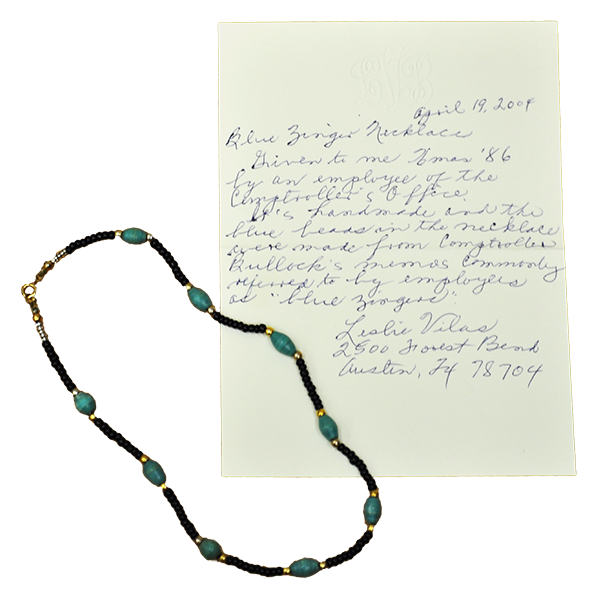 April 19, 2009
Blue Zinger Necklace
Given to me Xmas '86
by an employee of the
Comptroller's Office.
It's handmade and the
blue beads in the necklace
were made from Comptroller
Bullock's memos commonly
referred to by employees
as "blue zingers".
Leslie Vilas
2500 Forest Bend
Austin, Tx 78704